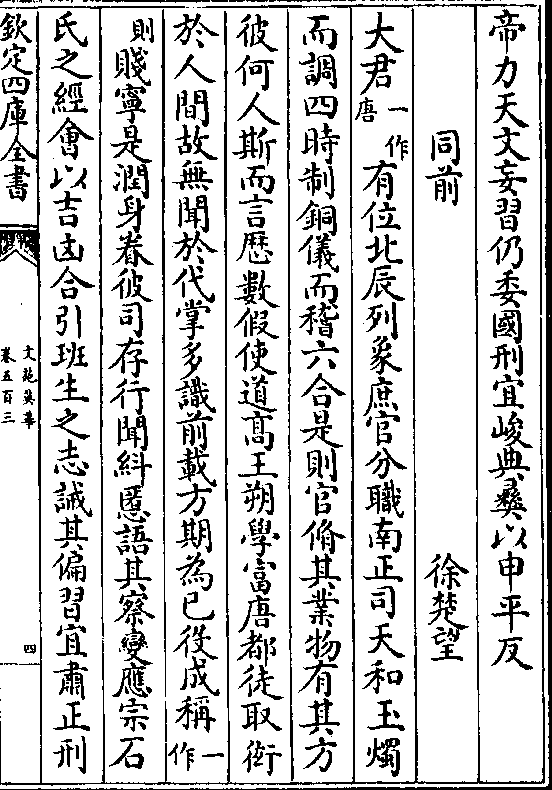 帝力天文妄習仍委國刑宜峻典彛以申平反
同前　徐楚望
大君一作唐有位北辰列象庶官分職南正司天和玉燭
而調四時制銅儀而稽六合是則官脩其業物有其方
彼何人斯而言歴數假使道髙王朔學富唐都徒取衒
於人間故無聞於代掌多識前載方期為已役成稱一作
則賤寧是潤身眷彼司存行聞糾慝語其察變應宗石
氏之經會以吉凶合引班生之志誡其偏習宜肅正刑
欽定四庫全書
文苑英華
卷五百三
四